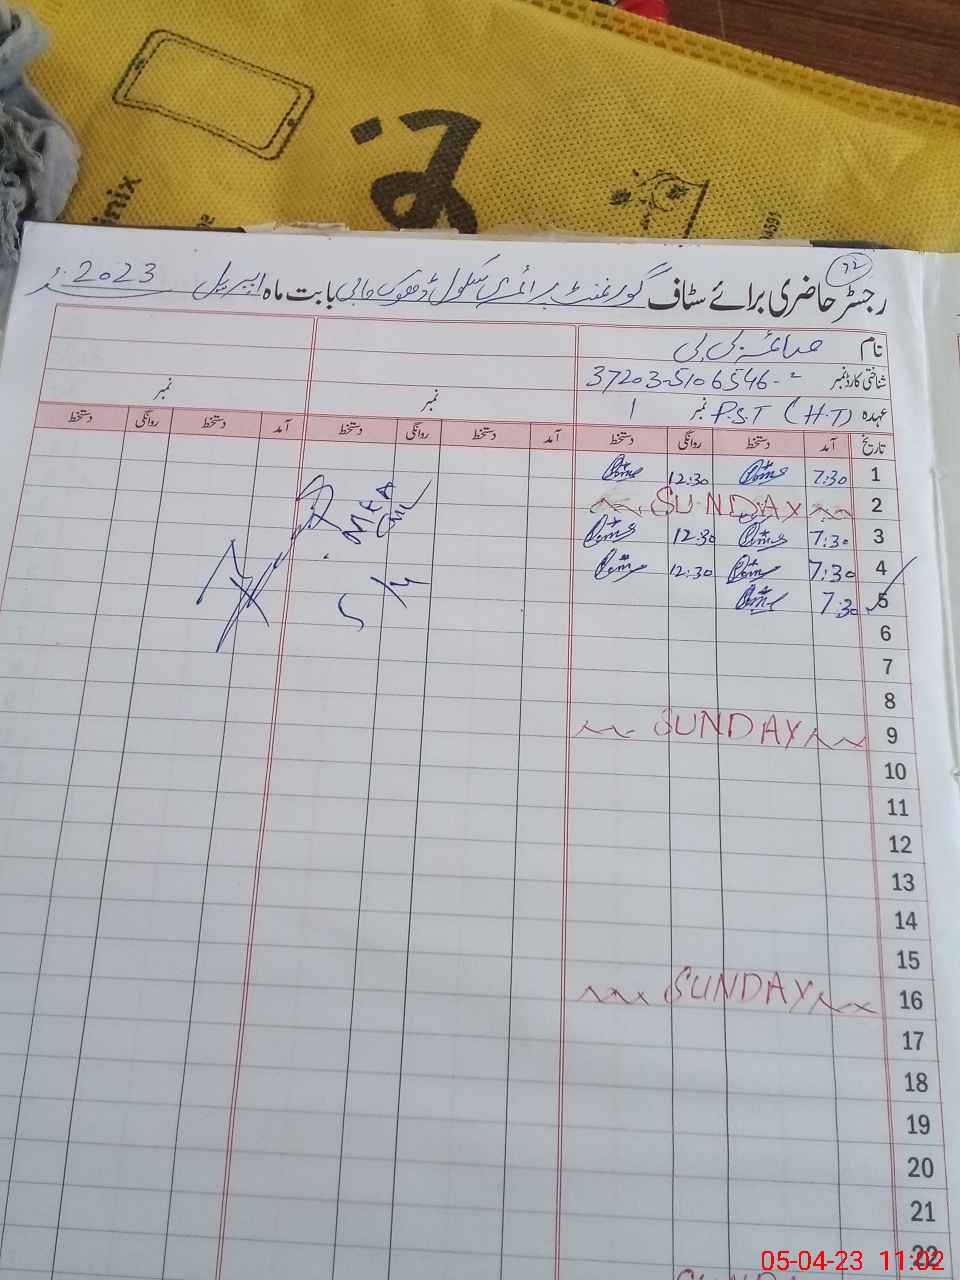 inix
72
رجسٹر حاضری برائے سٹاف گورنمنٹ پرائمری سکول ڈھوک حاجی بابت ماہ اپریل 2023ء
نام بی بی
شناختی کارڈ نمبر 37203-5106546-2
عہدہ P.S.T (H.T) نمبر 1
نمبر
نمبر
تاریخ آمد دستخط روانگی دستخط آمد دستخط روانگی دستخط آمد دستخط روانگی دستخط
1 7:30 12:30
2 SUNDAY
3 7:30 12:30
4 7:30 12:30
5 7:30
MEA
5/4
6
7
8
9 SUNDAY
10
11
12
13
14
15
16 SUNDAY
17
18
19
20
21
22
05-04-23 11:02